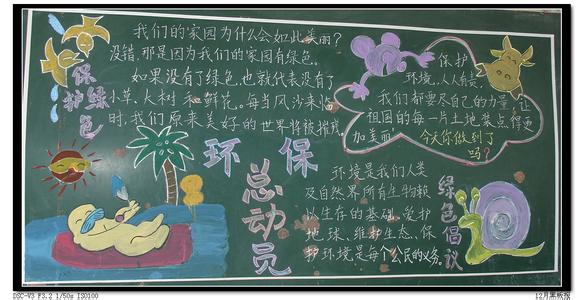 我们的家园为什么会如此美丽？
没错，那是因为我们的家园有绿色。
如果没有了绿色，也就代表没有了
小草、大树和鲜花。每当风沙来临
时，我们原来美好的世界将被摧残。
保护绿色
保护
环境，人人有责，
我们都要尽自己的力量，让
祖国的每一片土地装点得更
加美丽！
今天你做到了
吗？
环保
总动员
环境是我们人类
及自然界所有生物赖
以生存的基础，爱护
地球、维护生态、保
护环境是每个公民的义务。
绿色倡议
DSC-V3 F3.2 1/50s ISO100
12月黑板报